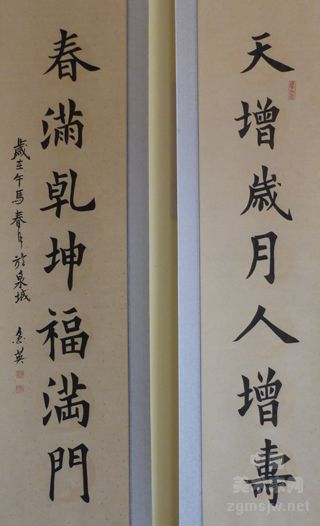 天增歲月人增壽
春滿乾坤福滿門
歲在壬午馬春月於泉城
zgmsjw.net